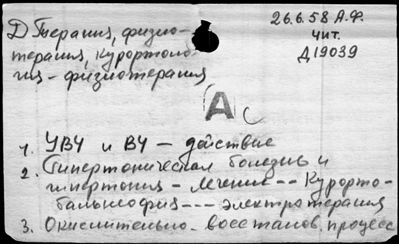 26.6.58 А.Ф.
Д Терапия, физио-
чит.
терапия, курортоло-
Д19039
гия - физиотерапия
А
1. УВЧ и ВЧ - действие
2. Гипертоническая болезнь и
гипертония - лечение -- Курорто-
бальнеофиз --- электротерапия
3. Окислительно-восстанов. процесс